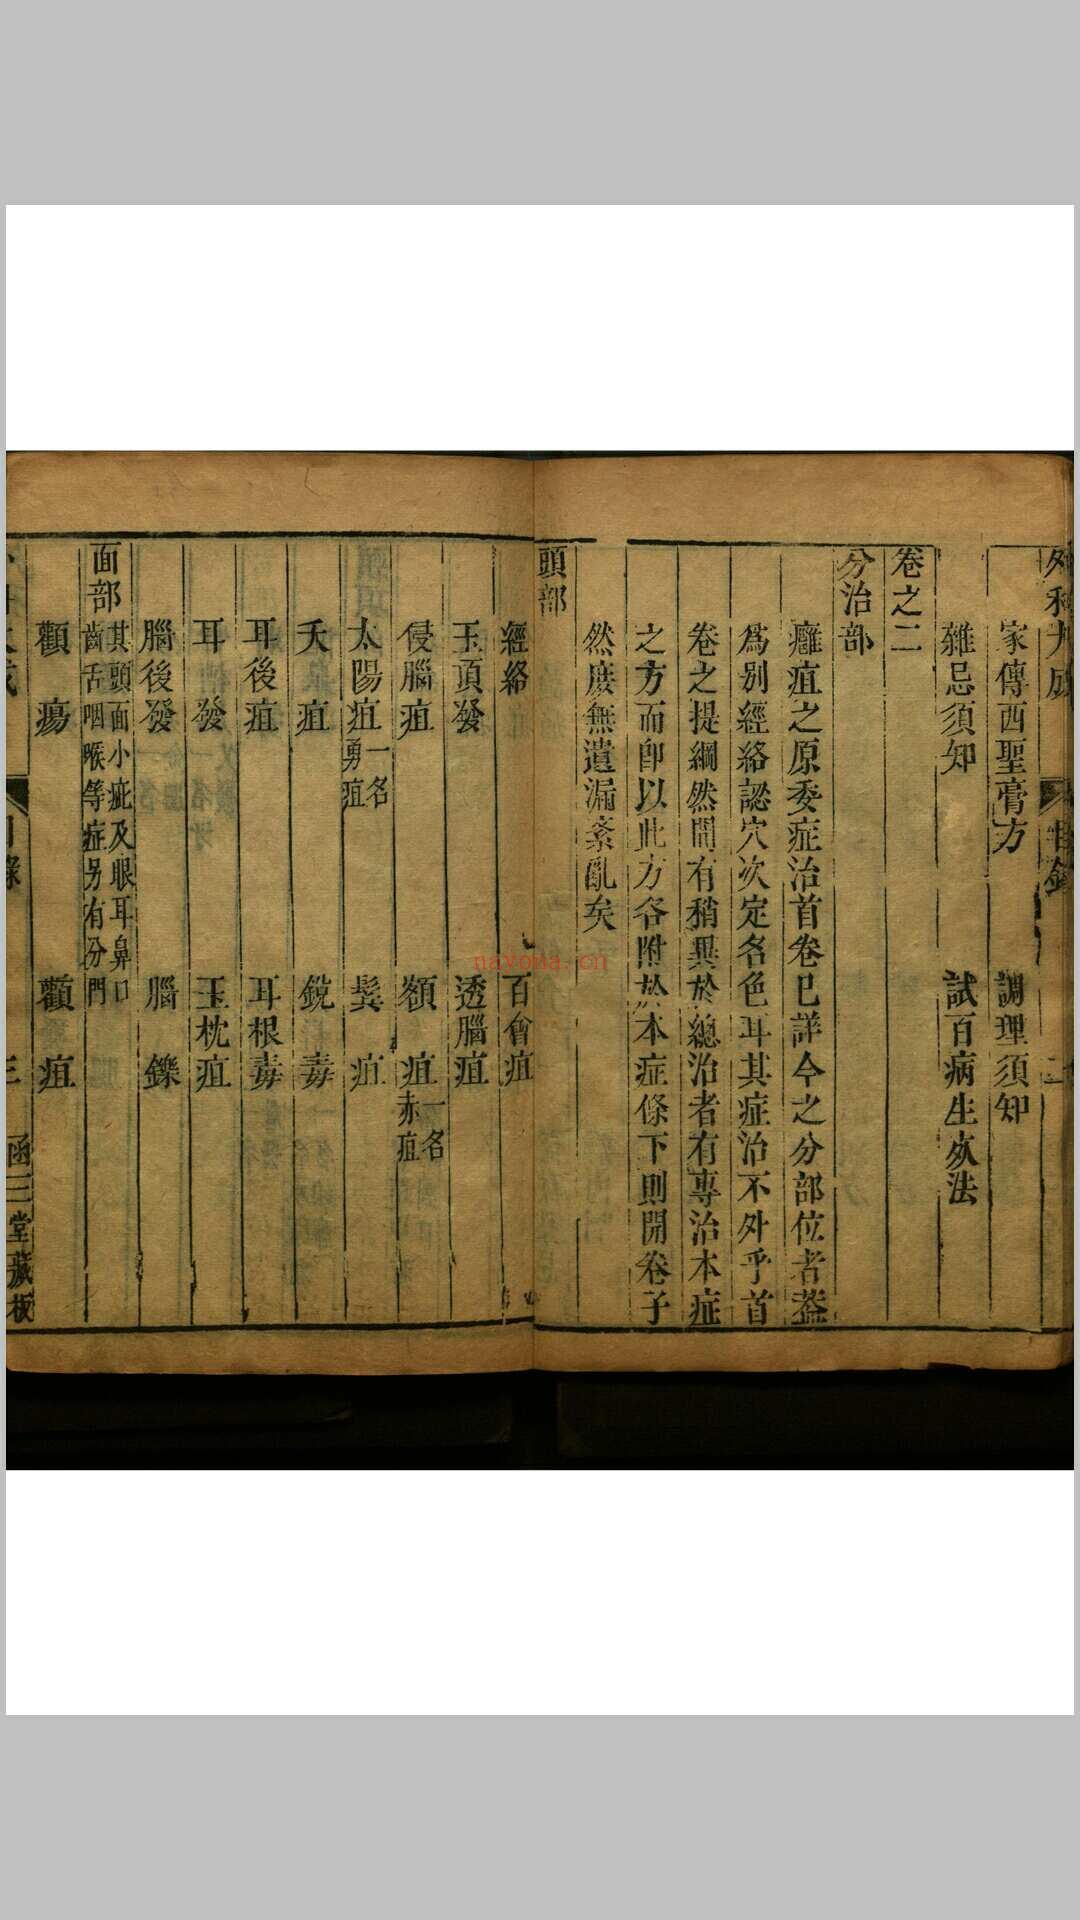 外科大成 目錄 二
家傳西聖膏方 調理須知
雜忌須知 試百病生死法
卷之二
分治部
癰疽之原委症治首卷已詳今之分部位者葢
爲别經絡認穴次定名色耳其症治不外乎首
卷之提綱然間有稍異於總治者有專治本症
之方而卽以此方各附於本症條下則開卷了
然庶無遺漏紊亂矣
頭部
經絡 百會疽
玉頂發 透腦疽
侵腦疽 額疽一名赤疽
太陽疽一名勇疽 鬓疽
夭疽 銳毒
耳後疽 耳根毒
耳發 玉枕疽
腦後發 腦鑠
面部其頭面小疵及眼耳鼻口齒舌咽喉等症另有分門
顴瘍 顴疽
目錄 三 函三堂藏板
nayona.cn